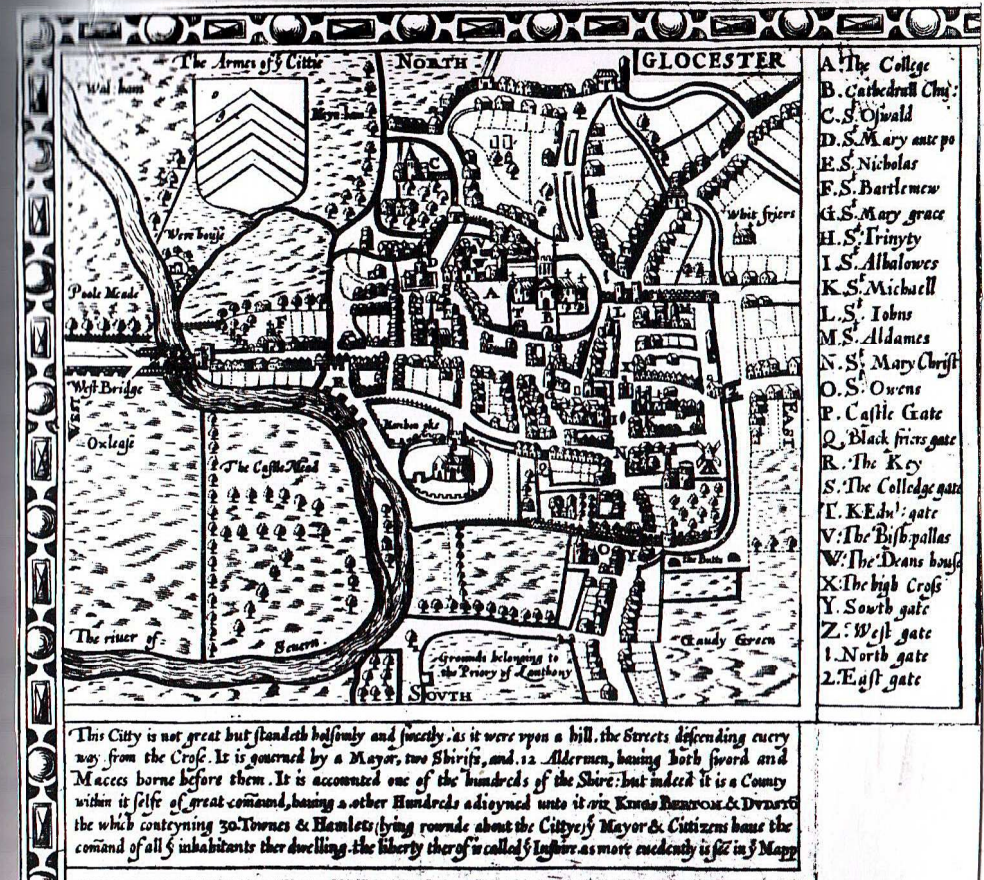 The Armes of yͤ Cittie
NORTH
GLOCESTER
Wal ham
Were house
Whit friers
Poole Meade
West Bridge
WEST
EAST
Oxlease
The Castle Mead
The river of
Severn
The Butts
Gaudy Green
Grounds belonging to
the Priory of Lanthony
SOVTH
A. The College
B. Cathedrall Chu:
C. Sᵗ Oswald
D. Sᵗ Mary ante po
E. Sᵗ Nicholas
F. Sᵗ Bartlemew
G. Sᵗ Mary grace
H. Sᵗ Trinyty
I. Sᵗ Alhalowes
K. Sᵗ Michaell
L. Sᵗ Iohns
M. Sᵗ Aldames
N. Sᵗ Mary Christ
O. Sᵗ Owens
P. Castle Gate
Q. Black friers gate
R. The Key
S. The Colledge gate
T. K Edw: gate
V. The Bish. pallas
W. The Deans house
X. The high Crosse
Y. Sowth gate
Z. West gate
1. North gate
2. East gate
This Citty is not great but standeth holsomly and sweetly. as it were vpon a hill. the Streets descending euery
way from the Crose. It is gouerned by a Mayor, two Shirifs, and. 12 Aldermen, hauing both sword and
Macees borne before them. It is accounted one of the hundreds of the Shire: but indeed it is a County
within it selfe of great comaund, hauing 2. other Hundreds adioyned unto it viz KINGS BERTON & DVDSTO
the which conteyning 30. Townes & Hamlets lying rounde about the Cittye, yͤ Mayor & Cittizens haue the
comand of all yͤ inhabitants ther dwelling. the liberty therof is called yͤ Inshire. as more euedently is seē in yͤ Mapp